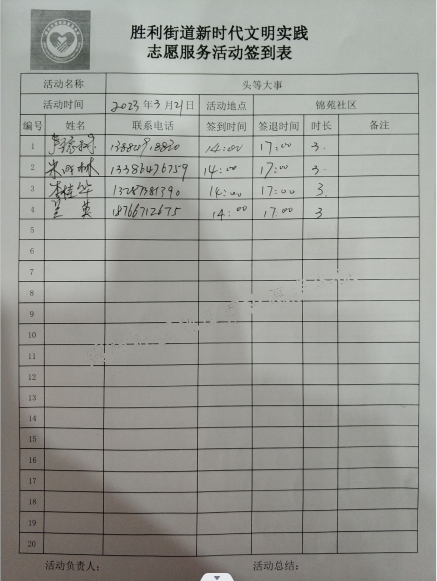 胜利街道新时代文明实践
志愿服务活动签到表
活动名称 头等大事
活动时间 2023年3月21日 活动地点 锦苑社区
编号 姓名 联系电话 签到时间 签退时间 时长 备注
1 14:00 17:00 3
2 13386496759 14:00 17:00 3
3 14:00 17:00 3
4 兰英 18766712675 14:00 17:00 3
5
6
7
8
9
10
11
12
13
14
15
16
17
18
19
20
活动负责人: 活动总结: